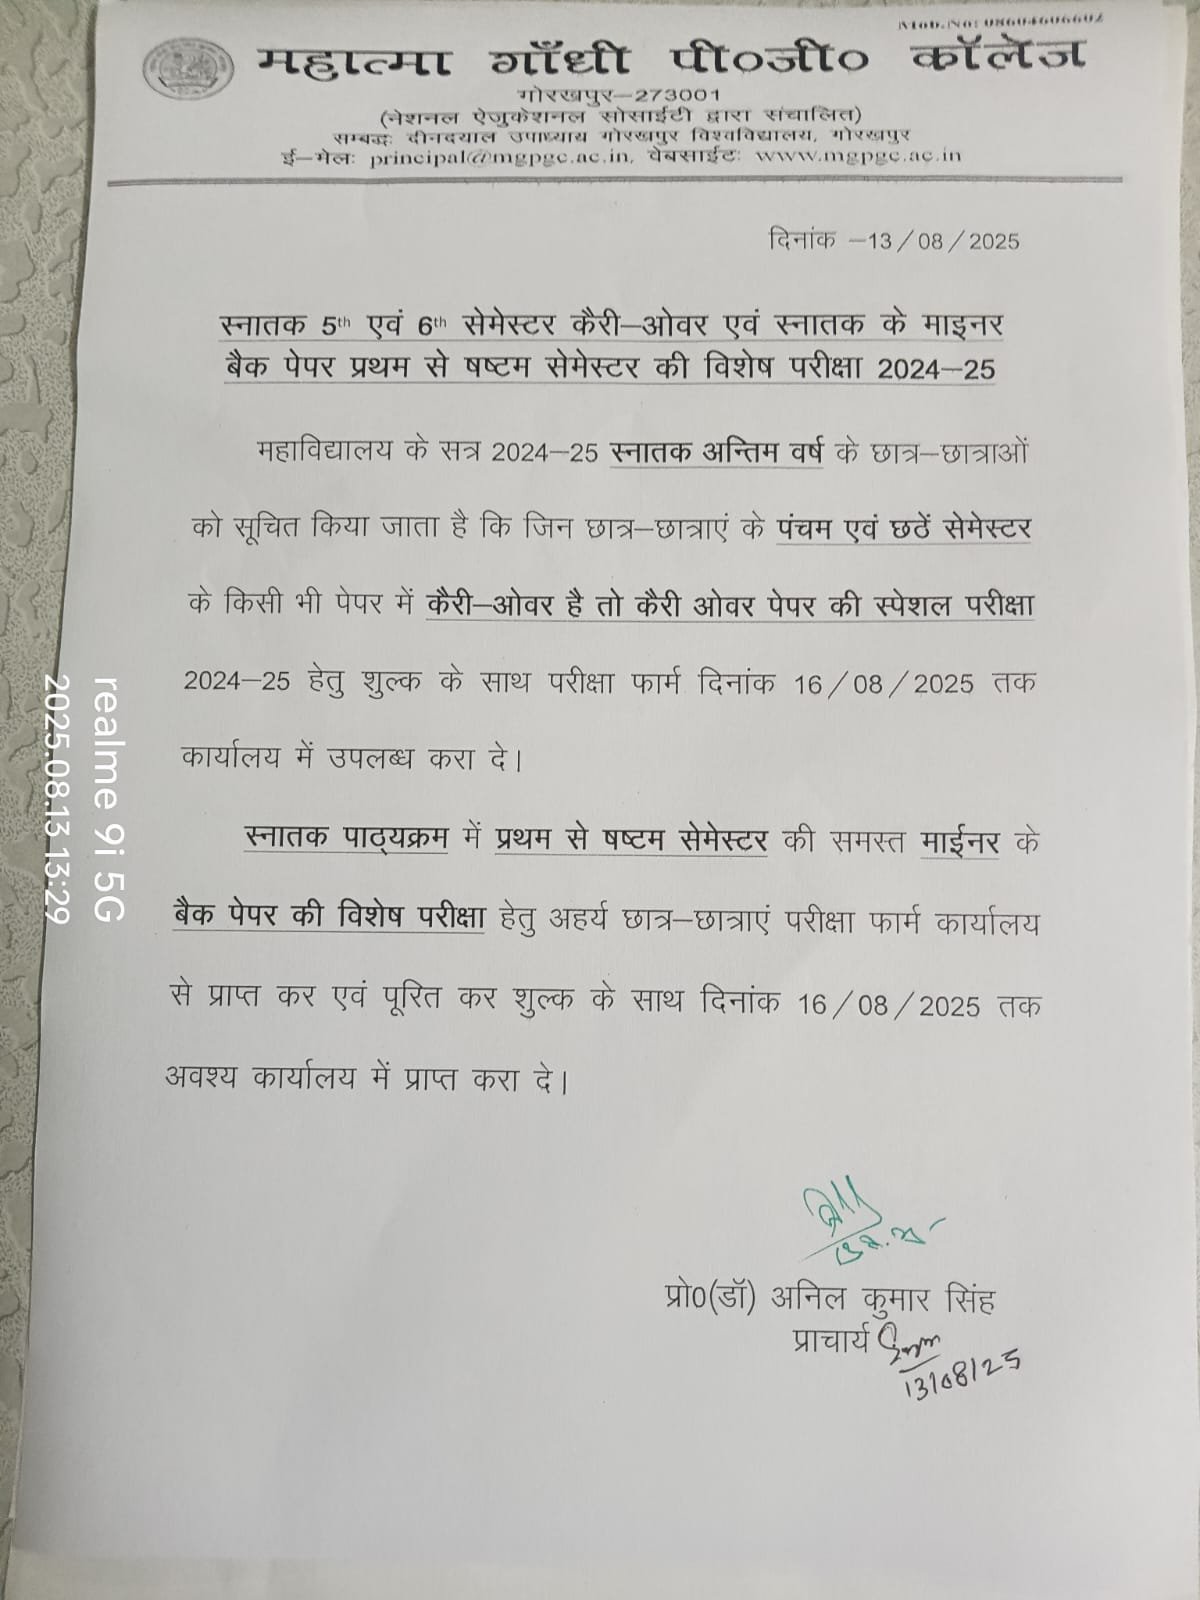 Mob.No: 08604606602
महात्मा गाँधी पी०जी० कॉलेज
गोरखपुर–273001
(नेशनल ऐजुकेशनल सोसाईटी द्वारा संचालित)
सम्बद्धः दीनदयाल उपाध्याय गोरखपुर विश्वविद्यालय, गोरखपुर
ई–मेलः principal@mgpgc.ac.in, वेबसाईटः www.mgpgc.ac.in
दिनांक –13/08/2025
स्नातक 5th एवं 6th सेमेस्टर कैरी–ओवर एवं स्नातक के माइनर
बैक पेपर प्रथम से षष्टम सेमेस्टर की विशेष परीक्षा 2024–25
महाविद्यालय के सत्र 2024–25 स्नातक अन्तिम वर्ष के छात्र–छात्राओं
को सूचित किया जाता है कि जिन छात्र–छात्राएं के पंचम एवं छठें सेमेस्टर
के किसी भी पेपर में कैरी–ओवर है तो कैरी ओवर पेपर की स्पेशल परीक्षा
2024–25 हेतु शुल्क के साथ परीक्षा फार्म दिनांक 16/08/2025 तक
कार्यालय में उपलब्ध करा दे।
स्नातक पाठ्यक्रम में प्रथम से षष्टम सेमेस्टर की समस्त माईनर के
बैक पेपर की विशेष परीक्षा हेतु अहर्य छात्र–छात्राएं परीक्षा फार्म कार्यालय
से प्राप्त कर एवं पूरित कर शुल्क के साथ दिनांक 16/08/2025 तक
अवश्य कार्यालय में प्राप्त करा दे।
प्रो0(डॉ) अनिल कुमार सिंह
प्राचार्य
13/08/25
realme 9i 5G
2025.08.13 13:29